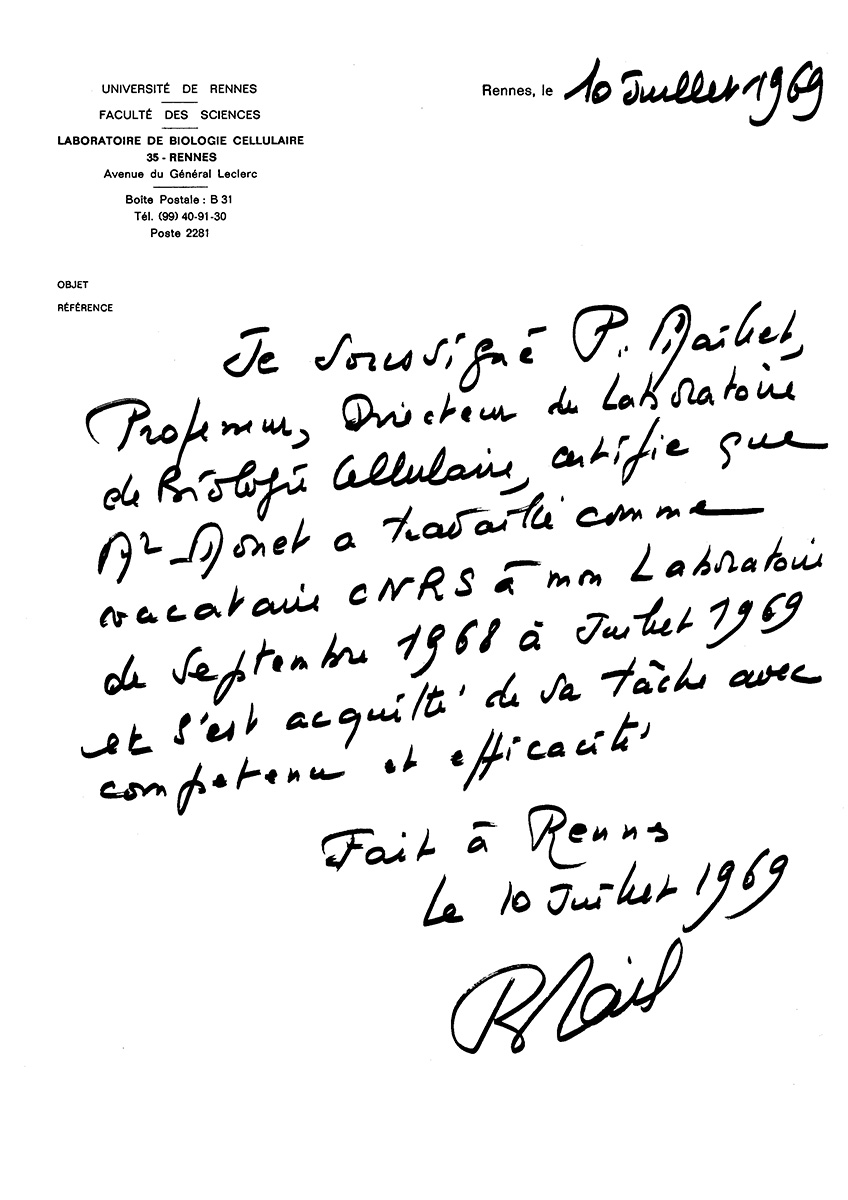 UNIVERSITÉ DE RENNES
FACULTÉ DES SCIENCES
LABORATOIRE DE BIOLOGIE CELLULAIRE
35 - RENNES
Avenue du Général Leclerc
Boite Postale : B 31
Tél. (99) 40-91-30
Poste 2281
Rennes, le 10 Juillet 1969
OBJET
RÉFÉRENCE
Je soussigné P. Maillet,
Professeur, Directeur du Laboratoire
de Biologie Cellulaire, certifie que
Mr Monet a travaillé comme
vacataire CNRS à mon Laboratoire
de Septembre 1968 à Juillet 1969
et s'est acquitté de sa tâche avec
compétence et efficacité
Fait à Rennes
le 10 Juillet 1969